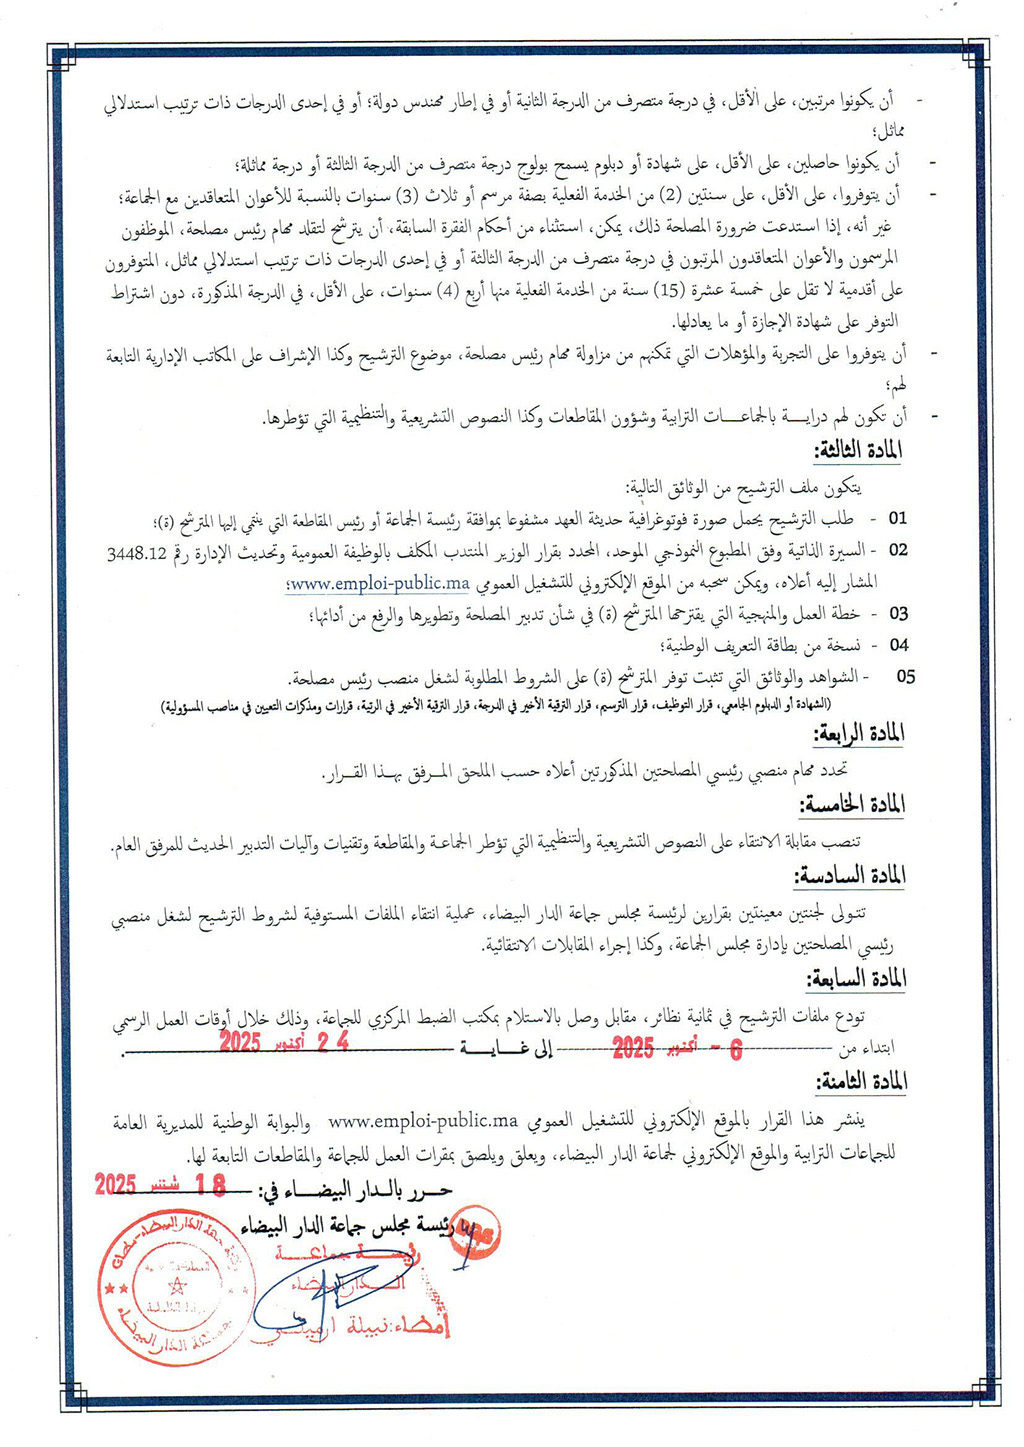 - أن يكونوا مرتبين، على الأقل، في درجة متصرف من الدرجة الثانية أو في إطار مهندس دولة؛ أو في إحدى الدرجات ذات ترتيب استدلالي
مماثل؛
- أن يكونوا حاصلين، على الأقل، على شهادة أو دبلوم يسمح بولوج درجة متصرف من الدرجة الثالثة أو درجة مماثلة؛
- أن يتوفروا، على الأقل، على سنتين (2) من الخدمة الفعلية بصفة مرسم أو ثلاث (3) سنوات بالنسبة للأعوان المتعاقدين مع الجماعة؛
غير أنه، إذا استدعت ضرورة المصلحة ذلك، يمكن، استثناء من أحكام الفقرة السابقة، أن يترشح لتقلد مهام رئيس مصلحة، الموظفون
المرسمون والأعوان المتعاقدون المرتبون في درجة متصرف من الدرجة الثالثة أو في إحدى الدرجات ذات ترتيب استدلالي مماثل، المتوفرون
على أقدمية لا تقل على خمسة عشرة (15) سنة من الخدمة الفعلية منها أربع (4) سنوات، على الأقل، في الدرجة المذكورة، دون اشتراط
التوفر على شهادة الإجازة أو ما يعادلها.
- أن يتوفروا على التجربة والمؤهلات التي تمكنهم من مزاولة مهام رئيس مصلحة، موضوع الترشيح وكذا الإشراف على المكاتب الإدارية التابعة
لهم؛
- أن تكون لهم درايـــة بالجماعـــات الترابية وشؤون المقاطعات وكذا النصوص التشريعية والتنظيمية التي تؤطرها.
المادة الثالثة:
يتكون ملف الترشيح من الوثائق التالية:
01 - طلب الترشيح يحمل صورة فوتوغرافية حديثة العهد مشفوعا بموافقة رئيسة الجماعة أو رئيس المقاطعة التي ينتمي إليها المترشح (ة)؛
02 - السيرة الذاتية وفق المطبوع النموذجي الموحد، المحدد بقرار الوزير المنتدب المكلف بالوظيفة العمومية وتحديث الإدارة رقم 3448.12
المشار إليه أعلاه، ويمكن سحبه من الموقع الإلكتروني للتشغيل العمومي www.emploi-public.ma؛
03 - خطة العمل والمنهجية التي يقترحها المترشح (ة) في شأن تدبير المصلحة وتطويرها والرفع من أدائها؛
04 - نسخة من بطاقة التعريف الوطنية؛
05 - الشواهد والوثائق التي تثبت توفر المترشح (ة) على الشروط المطلوبة لشغل منصب رئيس مصلحة.
(الشهادة أو الدبلوم الجامعي، قرار التوظيف، قرار الترسيم، قرار الترقية الأخير في الدرجة، قرار الترقية الأخير في الرتبة، قرارات ومذكرات التعيين في مناصب المسؤولية)
المادة الرابعة:
تحدد مهام منصبي رئيسي المصلحتين المذكورتين أعلاه حسب الملحق المـرفق بهـذا القـرار.
المادة الخامسة:
تنصب مقابلة الانتقاء على النصوص التشريعية والتنظيمية التي تؤطر الجماعة والمقاطعة وتقنيات وآليات التدبير الحديث للمرفق العام.
المادة السادسة:
تتولى لجنتين معينتين بقرارين لرئيسة مجلس جماعة الدار البيضاء، عملية انتقاء الملفات المستوفية لشروط الترشيح لشغل منصبي
رئيسي المصلحتين بإدارة مجلس الجماعة، وكذا إجراء المقابلات الانتقائية.
المادة السابعة:
تودع ملفات الترشيح في ثمانية نظائر، مقابل وصل بالاستلام بمكتب الضبط المركزي للجماعة، وذلك خلال أوقات العمل الرسمي
ابتداء من 6 - أكتوبر 2025 إلى غـــايـــة 24 أكتوبر 2025.
المادة الثامنة:
ينشر هذا القرار بالموقع الإلكتروني للتشغيل العمومي www.emploi-public.ma والبوابة الوطنية للمديرية العامة
للجماعات الترابية والموقع الإلكتروني لجماعة الدار البيضاء، ويعلق ويلصق بمقرات العمل للجماعة والمقاطعات التابعة لها.
حـــرر بالـدار البيضـــاء في: 18 شتنبر 2025
رئيسة مجلس جماعة الدار البيضاء
رئيسة جماعـــة
الـدار البيضاء
إمضاء: نبيلة ارميلـي
جماعة الدار البيضاء